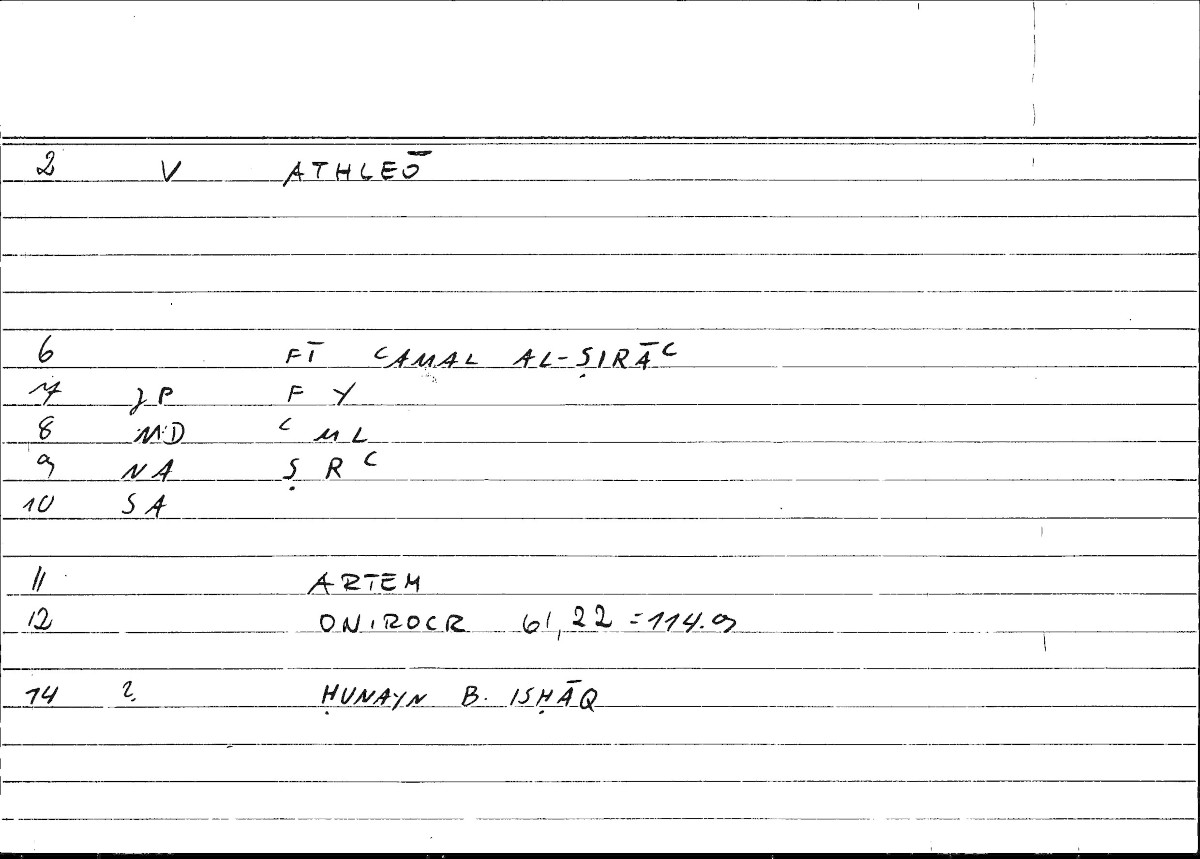 2 V ATHLEŌ
6 FĪ ʿAMAL AL-ṢIRĀʿ
7 JP F Y
8 MD ʿ M L
9 NA Ṣ R ʿ
10 SA
11 ARTEM
12 ONIROCR 61,22 = 114.9
14 2. ḤUNAYN B. ISḤĀQ